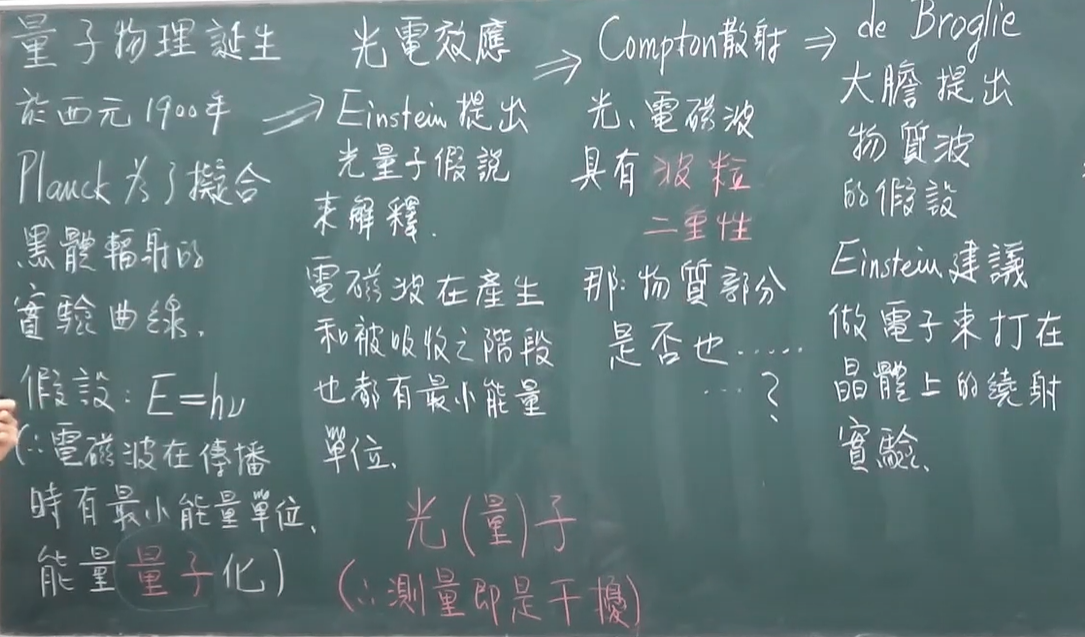 量子物理誕生
於西元1900年
Planck為了擬合
黑體輻射的
實驗曲線.
假設:E=hν
(∴電磁波在傳播
時有最小能量單位.
能量量子化)
⇒
光電效應
Einstein提出
光量子假說
來解釋.
電磁波在產生
和被吸收之階段
也都有最小能量
單位.
光(量)子
(∴測量即是干擾)
⇒
Compton散射
光、電磁波
具有波粒
二重性
那:物質部分
是否也.....
...?
⇒
de Broglie
大膽提出
物質波
的假設
Einstein建議
做電子束打在
晶體上的繞射
實驗.